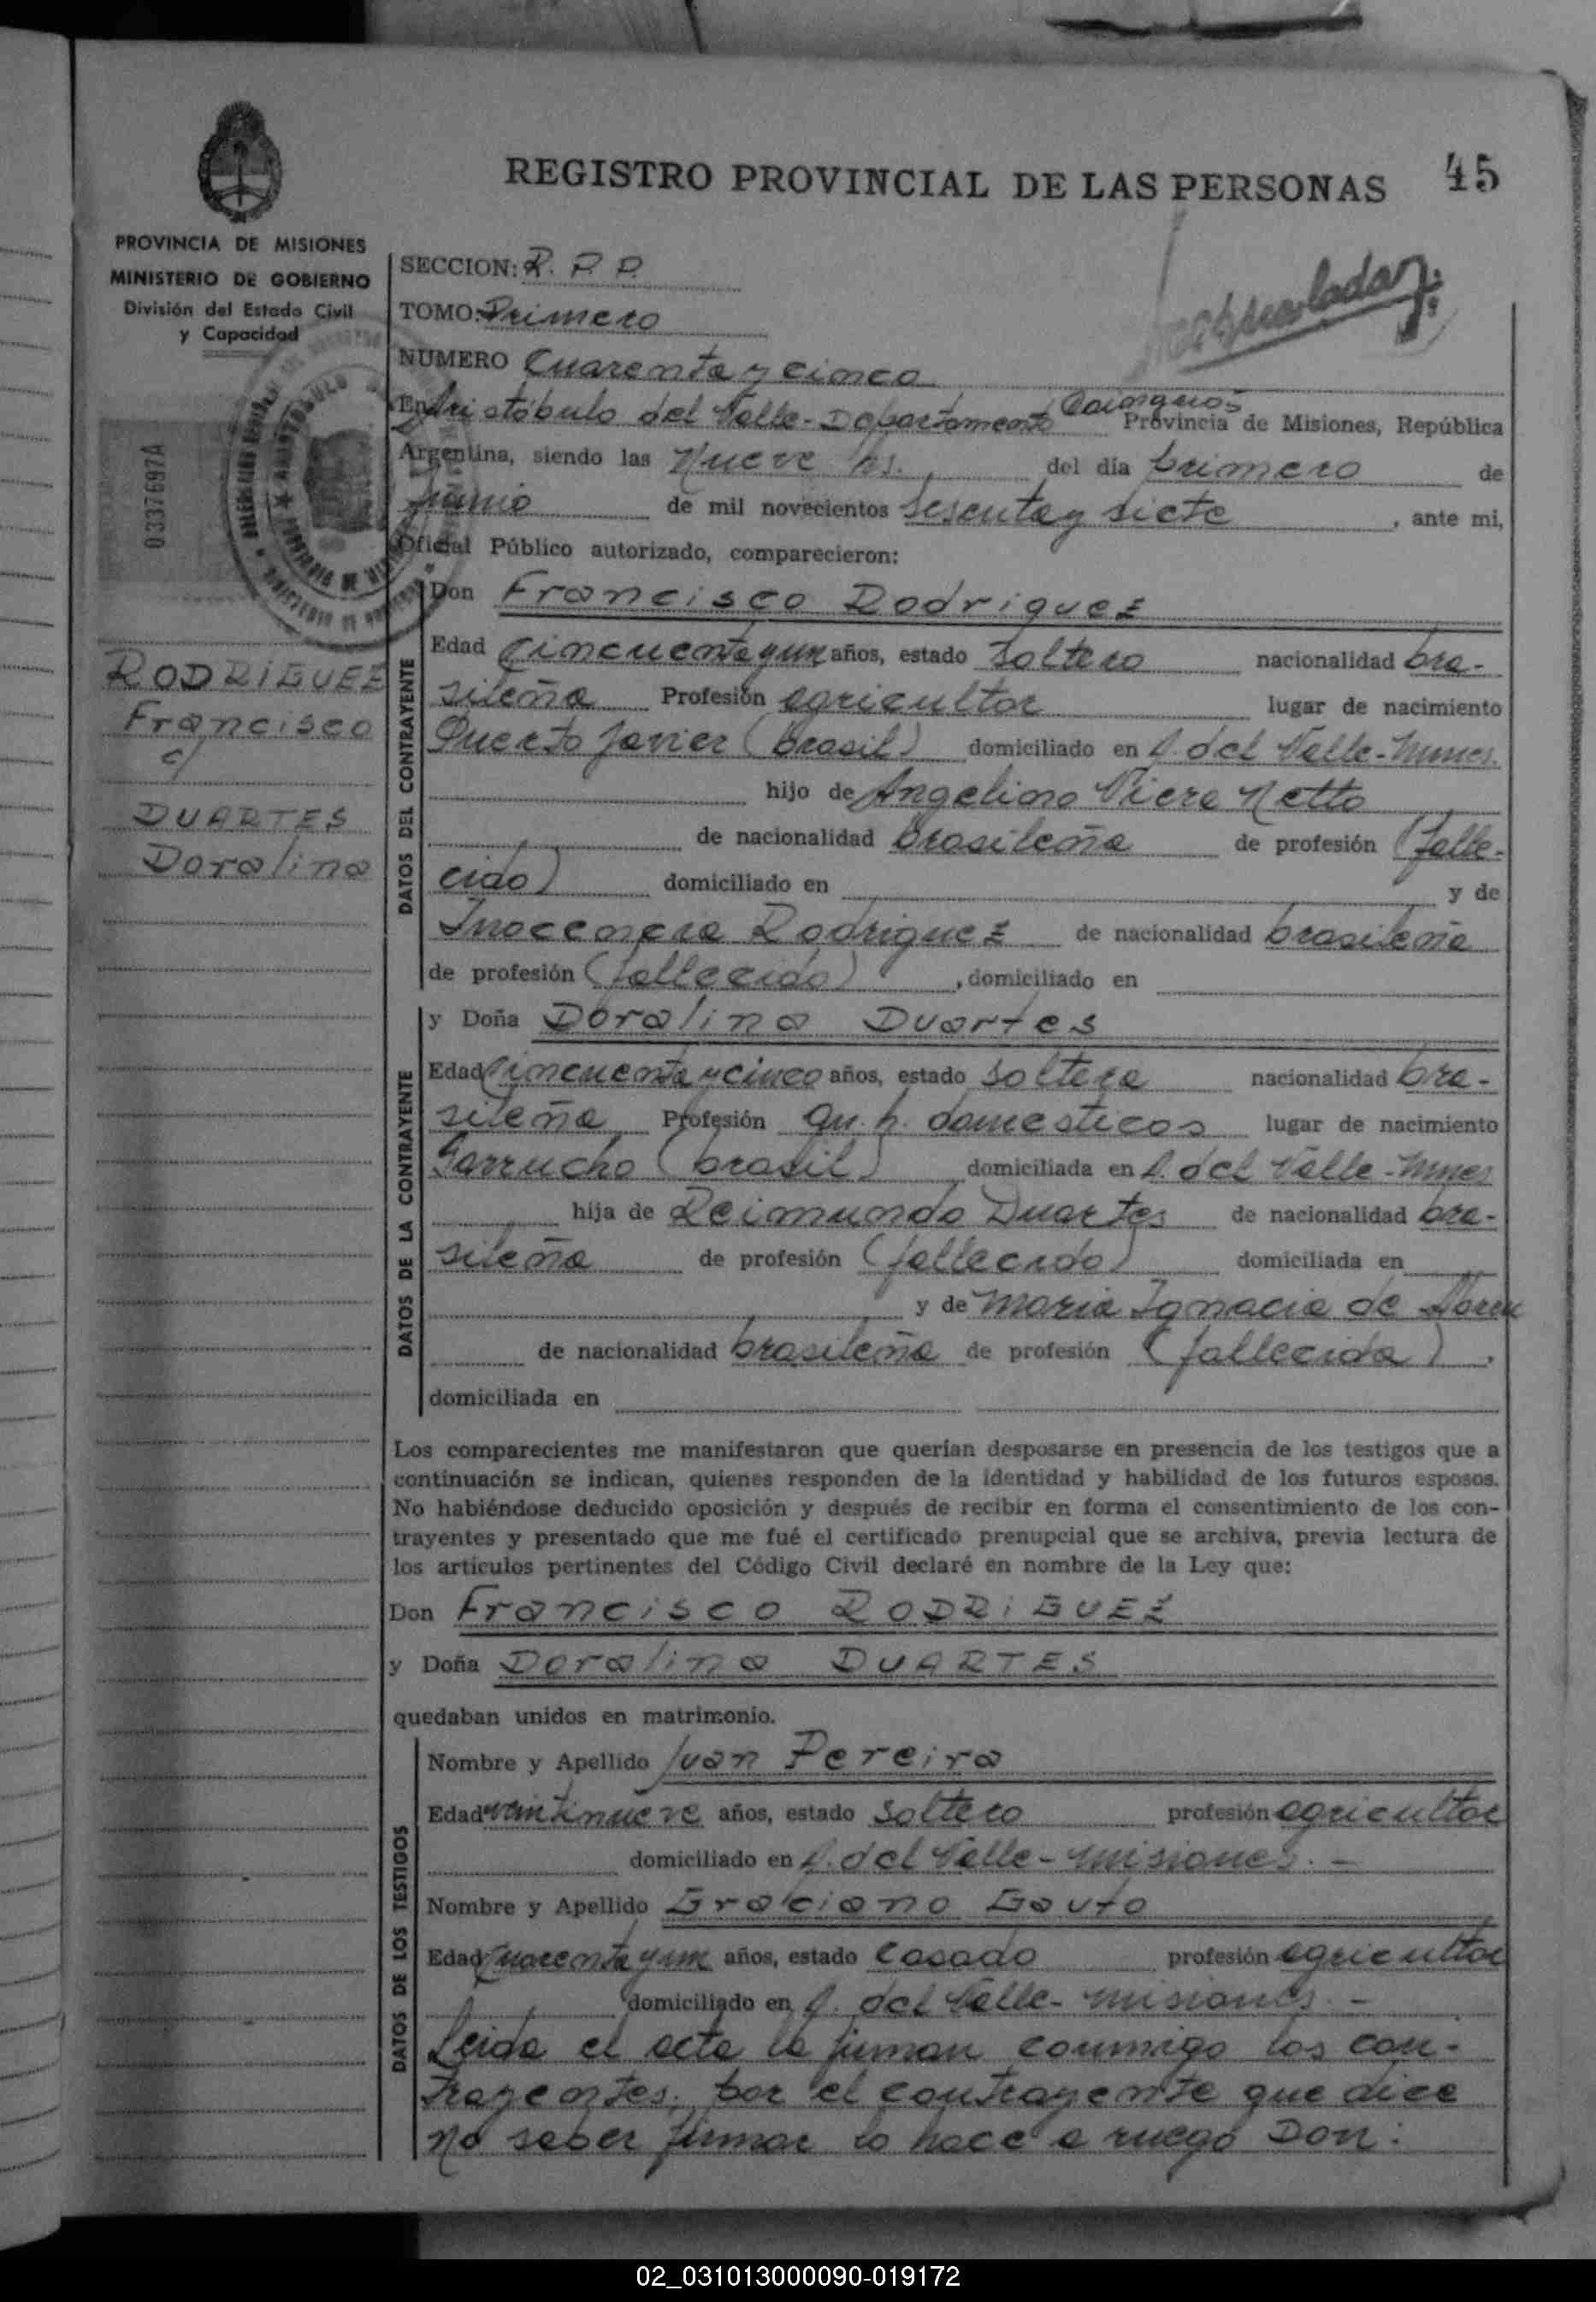 45
REGISTRO PROVINCIAL DE LAS PERSONAS
PROVINCIA DE MISIONES
MINISTERIO DE GOBIERNO
División del Estado Civil
y Capacidad
0337697A
RODRIGUEZ
Francisco
c/
DUARTES
Doralina
SECCION: R. P. P.
TOMO: Primero
NUMERO Cuarenta y cinco
En Aristóbulo del Valle - Departamento Cainguás Provincia de Misiones, República
Argentina, siendo las Nueve hs. del día primero de
junio de mil novecientos sesenta y siete, ante mi,
Oficial Público autorizado, comparecieron:
Don Francisco Rodriguez
DATOS DEL CONTRAYENTE
Edad Cincuenta y un años, estado soltero nacionalidad bra-
sileña Profesión agricultor lugar de nacimiento
Puerto Javier (brasil) domiciliado en A. del Valle - Mnes.
hijo de Angelino Viera Netto
de nacionalidad brasileña de profesión (falle-
cido) domiciliado en y de
Inocencia Rodriguez de nacionalidad brasileña
de profesión (fallecida), domiciliado en
y Doña Doralina Duartes
DATOS DE LA CONTRAYENTE
Edad Cincuenta y cinco años, estado soltera nacionalidad bra-
sileña Profesión qu. h. domesticos lugar de nacimiento
Garrucho (brasil) domiciliada en A. del Valle - Mnes
hija de Reimundo Duartes de nacionalidad bra-
sileña de profesión (fallecido) domiciliada en
y de Maria Ignacia de Abreu
de nacionalidad brasileña de profesión (fallecida).
domiciliada en
Los comparecientes me manifestaron que querían desposarse en presencia de los testigos que a
continuación se indican, quienes responden de la identidad y habilidad de los futuros esposos.
No habiéndose deducido oposición y después de recibir en forma el consentimiento de los con-
trayentes y presentado que me fué el certificado prenupcial que se archiva, previa lectura de
los artículos pertinentes del Código Civil declaré en nombre de la Ley que:
Don Francisco RODRIGUEZ
y Doña Doralina DUARTES
quedaban unidos en matrimonio.
DATOS DE LOS TESTIGOS
Nombre y Apellido Juan Pereira
Edad veintinueve años, estado soltero profesión agricultor
domiciliado en A. del Valle - misiones. -
Nombre y Apellido Graciano Gauto
Edad Cuarenta y un años, estado casado profesión agricultor
domiciliado en A. del Valle - misiones. -
Leida el acta la firman conmigo los con-
trayentes, por el contrayente que dice
no saber firmar lo hace a ruego Don:
02_031013000090-019172